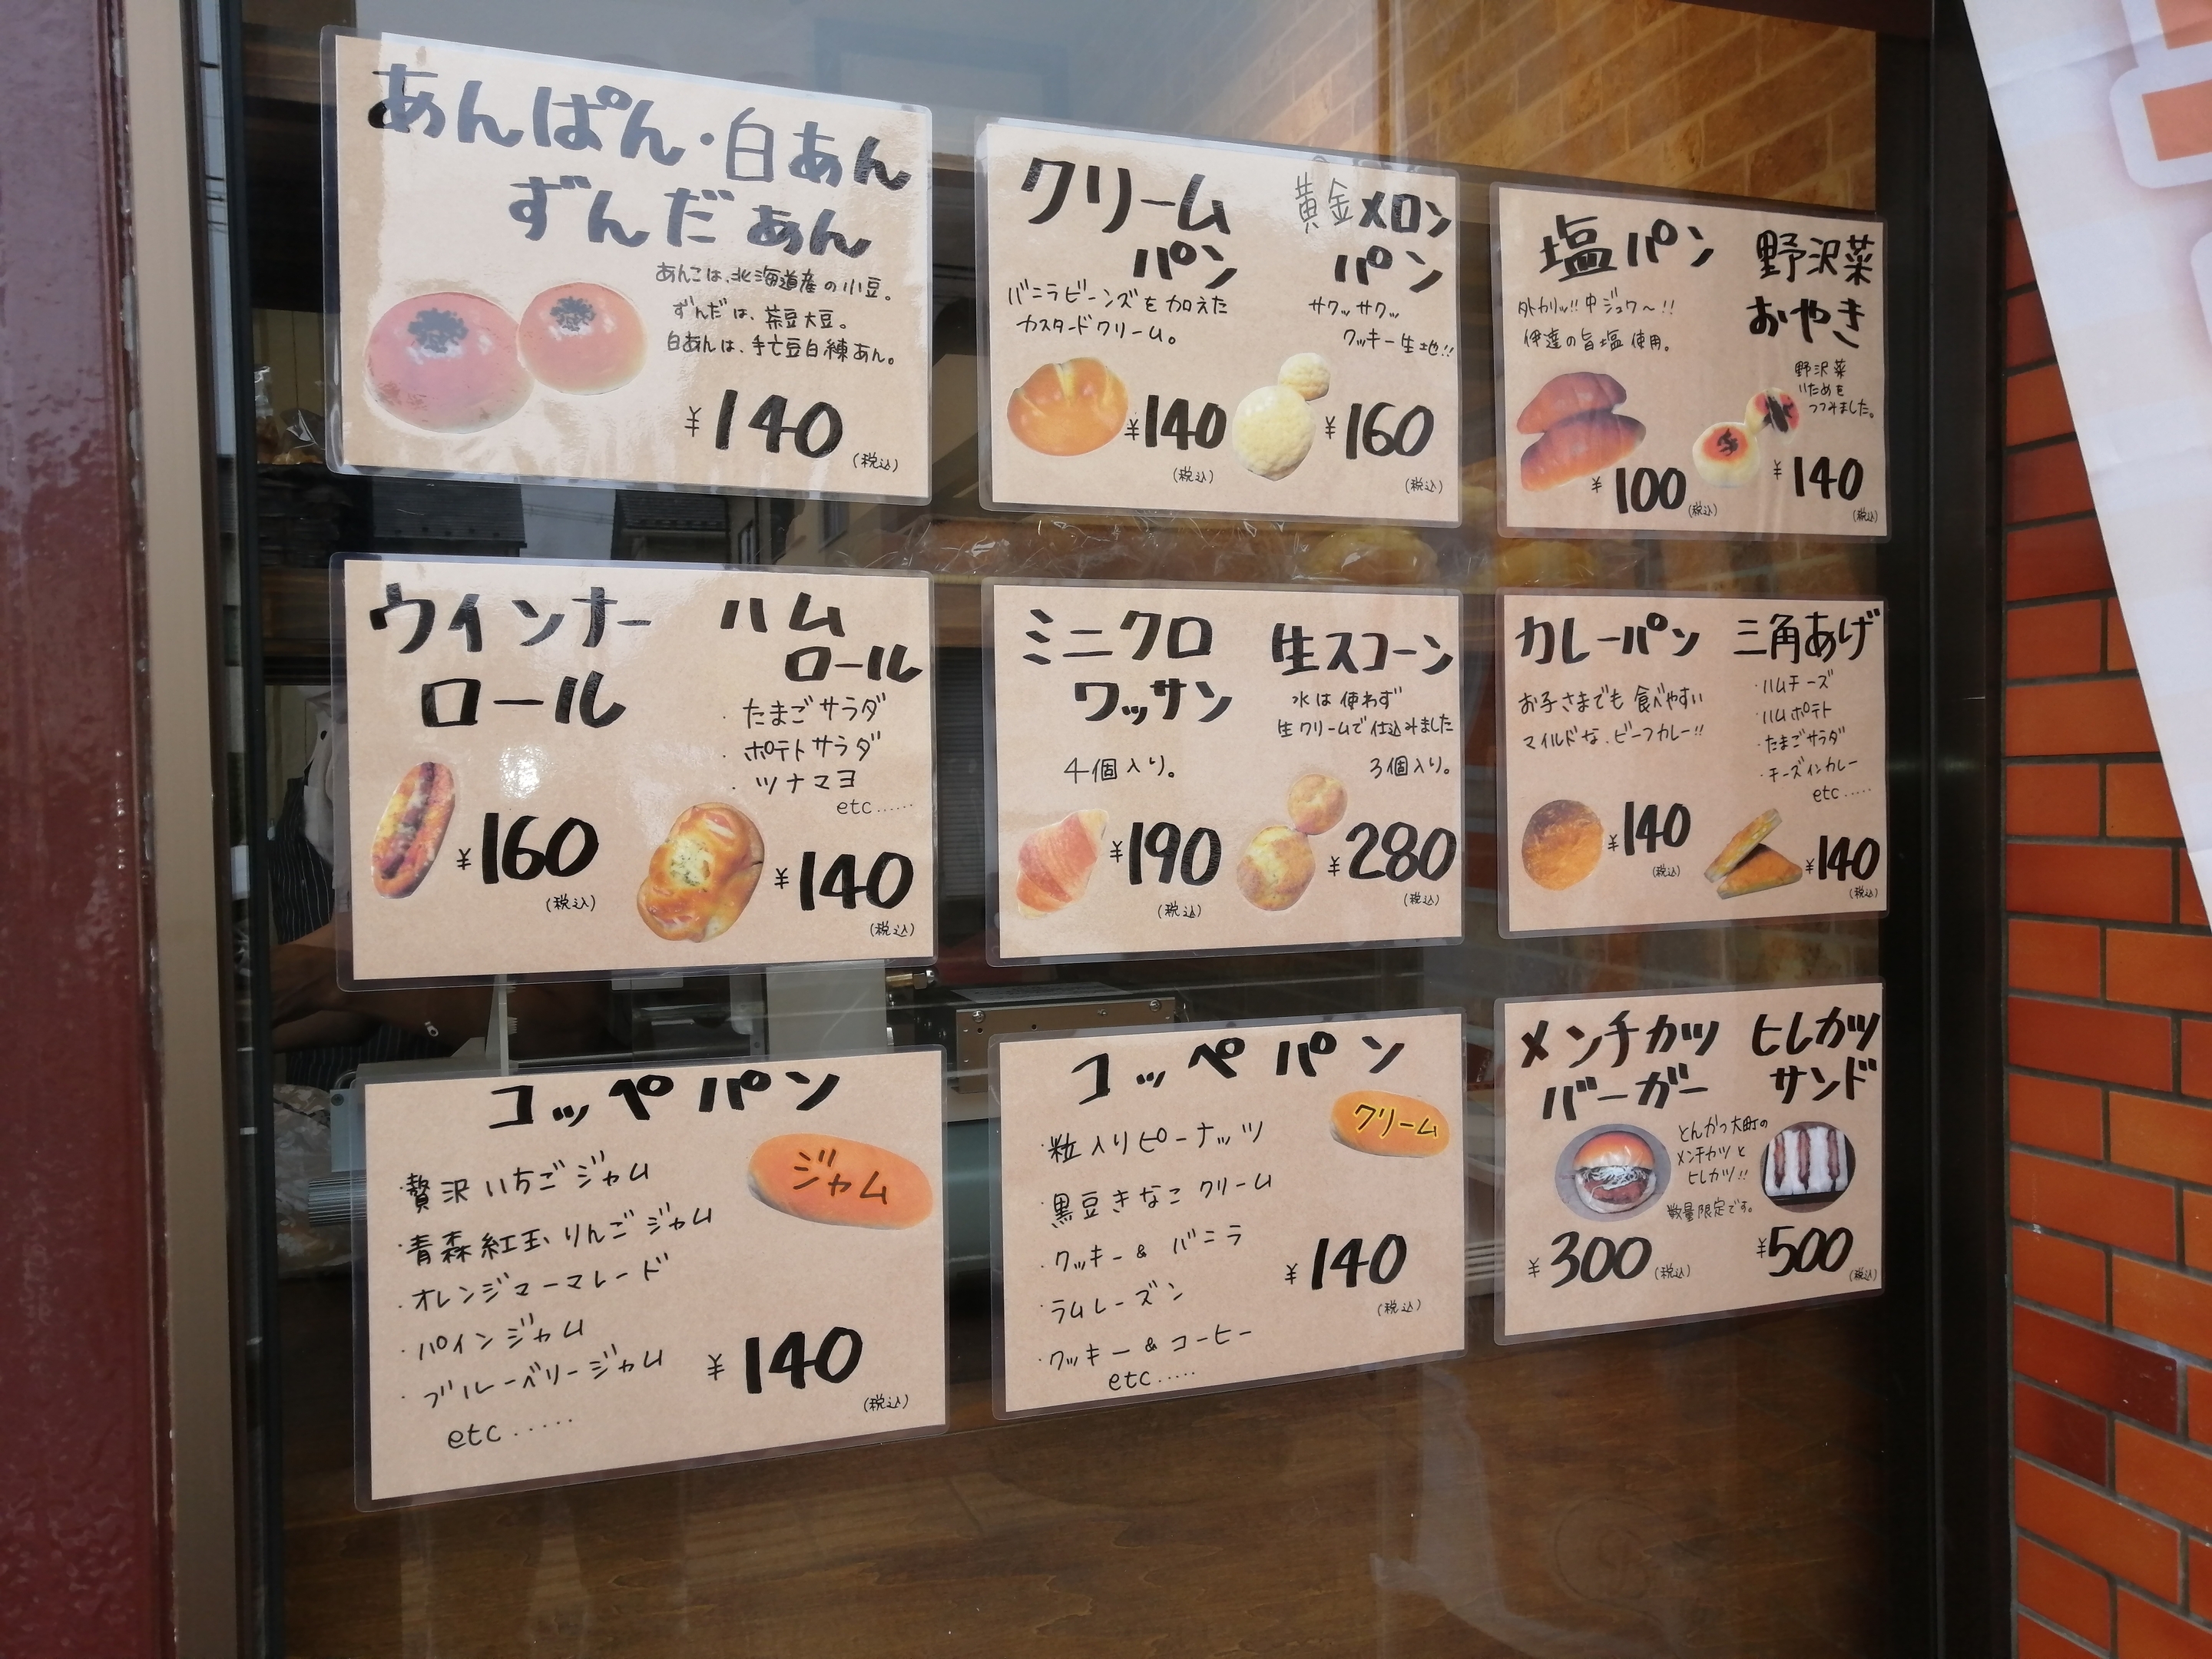 あんぱん・白あん
ずんだあん
あんこは、北海道産の小豆。
ずんだは、茶豆大豆。
白あんは、手亡豆白練あん。
¥140
(税込)
クリーム
パン
バニラビーンズを加えた
カスタードクリーム。
¥140
(税込)
黄金メロン
パン
サクッサクッ
クッキー生地!!
¥160
(税込)
塩パン
外カリッ!!中ジュワ〜!!
伊達の旨塩使用。
¥100
(税込)
野沢菜
おやき
野沢菜
いためを
つつみました。
¥140
(税込)
ウインナー
ロール
¥160
(税込)
ハム
ロール
・たまごサラダ
・ポテトサラダ
・ツナマヨ
etc......
¥140
(税込)
ミニクロ
ワッサン
4個入り。
¥190
(税込)
生スコーン
水は使わず
生クリームで仕込みました
3個入り。
¥280
(税込)
カレーパン
お子さまでも食べやすい
マイルドな、ビーフカレー!!
¥140
(税込)
三角あげ
・ハムチーズ
・ハムポテト
・たまごサラダ
・チーズインカレー
etc.....
¥140
(税込)
コッペパン
ジャム
・贅沢いちごジャム
・青森紅玉りんごジャム
・オレンジマーマレード
・パインジャム
・ブルーベリージャム
etc......
¥140
(税込)
コッペパン
クリーム
・粒入りピーナッツ
・黒豆きなこクリーム
・クッキー&バニラ
・ラムレーズン
・クッキー&コーヒー
etc.....
¥140
(税込)
メンチカツ
バーガー
ヒレカツ
サンド
とんかつ大町の
メンチカツと
ヒレカツ!!
数量限定です。
¥300
(税込)
¥500
(税込)